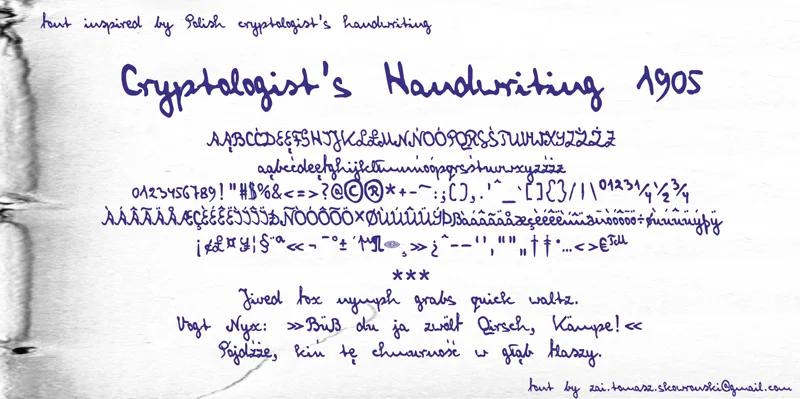 font inspired by Polish cryptologist's handwriting
Cryptologist's Handwriting 1905
AĄBCĆDEĘFGHIJKLŁMNŃOÓPQRSŚTUVWXYZŹŻ
aąbcćdeęfghijklłmnńoópqrsśtuvwxyzźż
0123456789!"#$%&<=>?@©®*+-~:;(),.'^_`[]{}/|\
¡¢£¤¥¦§¨ª«¬¯°±
***
Jived fox nymph grabs quick waltz.
Vogt Nyx: »Büß du ja zwölf Qirsch, Kämpe!«
Pójdźże, kiń tę chmurność w głąb flaszy.
font by zai.tomasz.skowronski@gmail.com